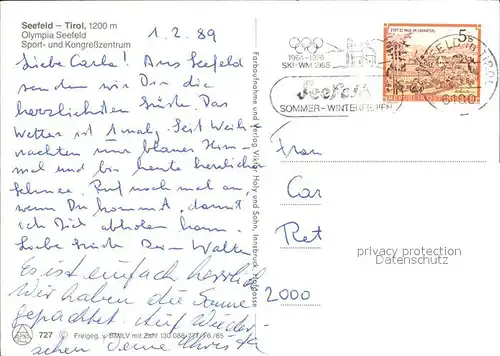 Seefeld – Tirol, 1200 m
Olympia Seefeld
Sport- und Kongreßzentrum
1.2.89
Liebe Carla! Aus Seefeld
senden wir Dir die
herzlichsten Grüße. Das
Wetter ist 1malig. Seit Weih-
nachten nur blauer Him-
mel und bis heute herrlicher
Schnee. Ruf noch mal an,
wenn Du kommst, damit
ich Dich abholen kann.
Liebe Grüße Dein Walter
Es ist einfach herrlich
Wir haben die Sonne
gepachtet. Auf Wieder-
sehen deine
727 Freigeg. v. BMfLV mit Zahl 13.088-
Farbaufnahme und Verlag Viktor Holy und Sohn, Innsbruck, Hofgasse
1964-1976
SKI-WM 1985
Seefeld
SOMMER-WINTERFERIEN
5s
6100
Frau
Car
Ret
2000
privacy protection
Datenschutz